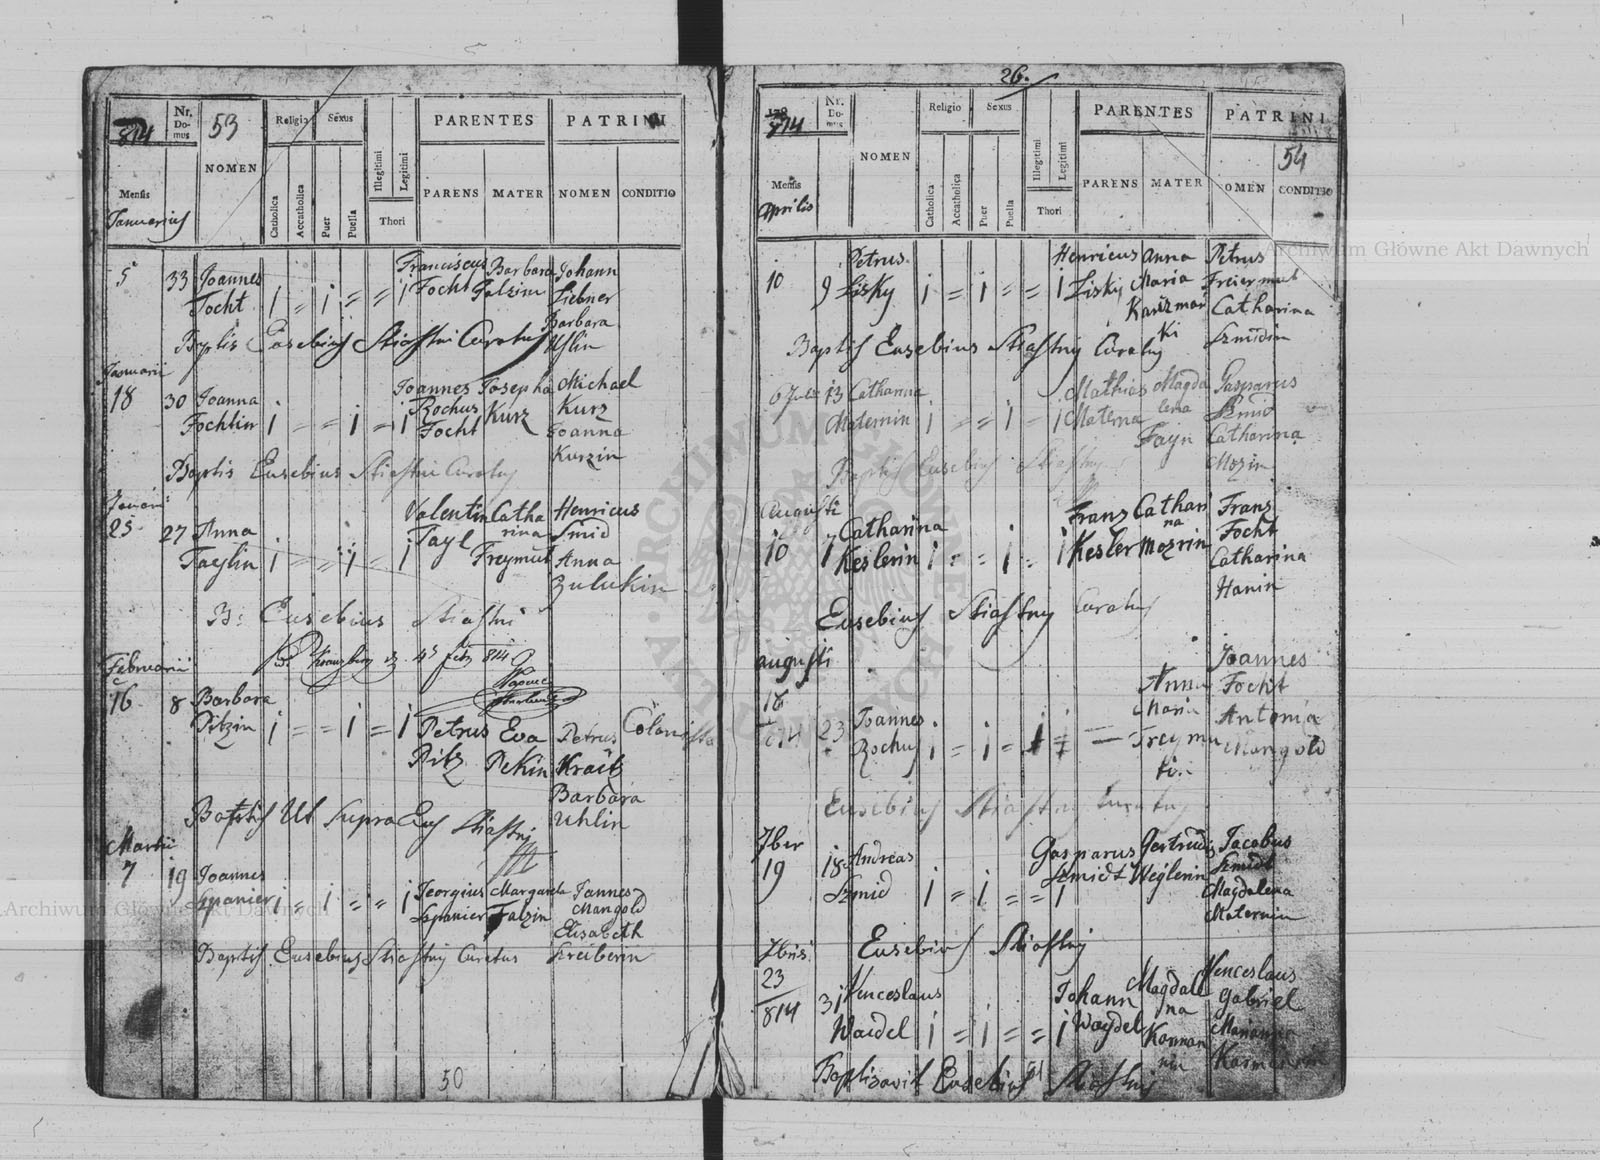 814
Nr. Do-mus
53
NOMEN
Religio
Sexus
Catholica
Accatholica
Puer
Puella
Illegitimi
Legitimi
Thori
PARENTES
PATRINI
PARENS
MATER
NOMEN
CONDITIO
Mensis
Januarius
5 33 Joannes Focht 1 = 1 = = 1 Franciscus Focht Barbara Johann Liebner
Barbara
Baptis Eusebius Stiastni Curatus
Januarii
18 30 Joanna Fochtin 1 = = 1 = 1 Joannes Rochus Focht Josepha Kurz Michael Kurz
Joanna Kurzin
Baptis Eusebius Stiastni Curatus
25 27 Anna Taylin 1 = = 1 = 1 Valentin Tayl Catharina Freymut Henricus Smid
Anna Zulukin
B: Eusebius Stiastni
814
Februarii
16 8 Barbara Pitzin 1 = = 1 = 1 Petrus Pitz Eva Pekin Petrus Kraitz Colonista
Barbara Uhlin
Baptis Ut Supra Eus Stiastnj
Martii
7 19 Joannes Szpanier 1 = 1 = = 1 Georgius Szpanier Margareta Falzin Jannes Mangold
Elisabeth Szreiberin
Baptis Eusebius Stiastny Curatus
50
26.
814
Nr. Do-mus
NOMEN
Religio
Sexus
Catholica
Accatholica
Puer
Puella
Illegitimi
Legitimi
Thori
PARENTES
PATRINI
54
PARENS
MATER
OMEN
CONDITIO
Mensis
Aprilis
Archiwum Główne Akt Dawnych
10 9 Petrus Lisky 1 = 1 = = 1 Henricus Lisky Anna Maria Petrus Freiermut
Catharina Szmidin
Baptis Eusebius Stiastny Curatus
6 13 Catharina Maternin 1 = = 1 = 1 Mathias Materna Magdalena Fayn Gasparus Szmid
Catharina Mozin
Baptis Eusebius Stiastny
Augusti
10 7 Catharina Keslerin 1 = = 1 = 1 Franz Kesler Catharina Mozrin Franz Focht
Catharina Hanin
Eusebius Stiastny Curatus
augusti
18 814 23 Joannes Rochus 1 = 1 = Anna Maria Joannes Focht
Antonia Mangold
Eusebius Stiastny Curatus
7ber
19 18 Andreas Szmid 1 = 1 = = 1 Gasparus Szmidt Gertrudis Weglerin Jacobus Szmidt
Magdalena Maternin
Eusebius Stiastny
7bris
23 814 31 Venceslaus Waidel 1 = 1 = = 1 Johann Waydel Magdalena Venceslaus Gabriel
Marianna
Baptisavit Eusebius Stiastny
Archiwum Główne Akt Dawnych
ARCHIWUM GŁÓWNE AKT DAWNYCH